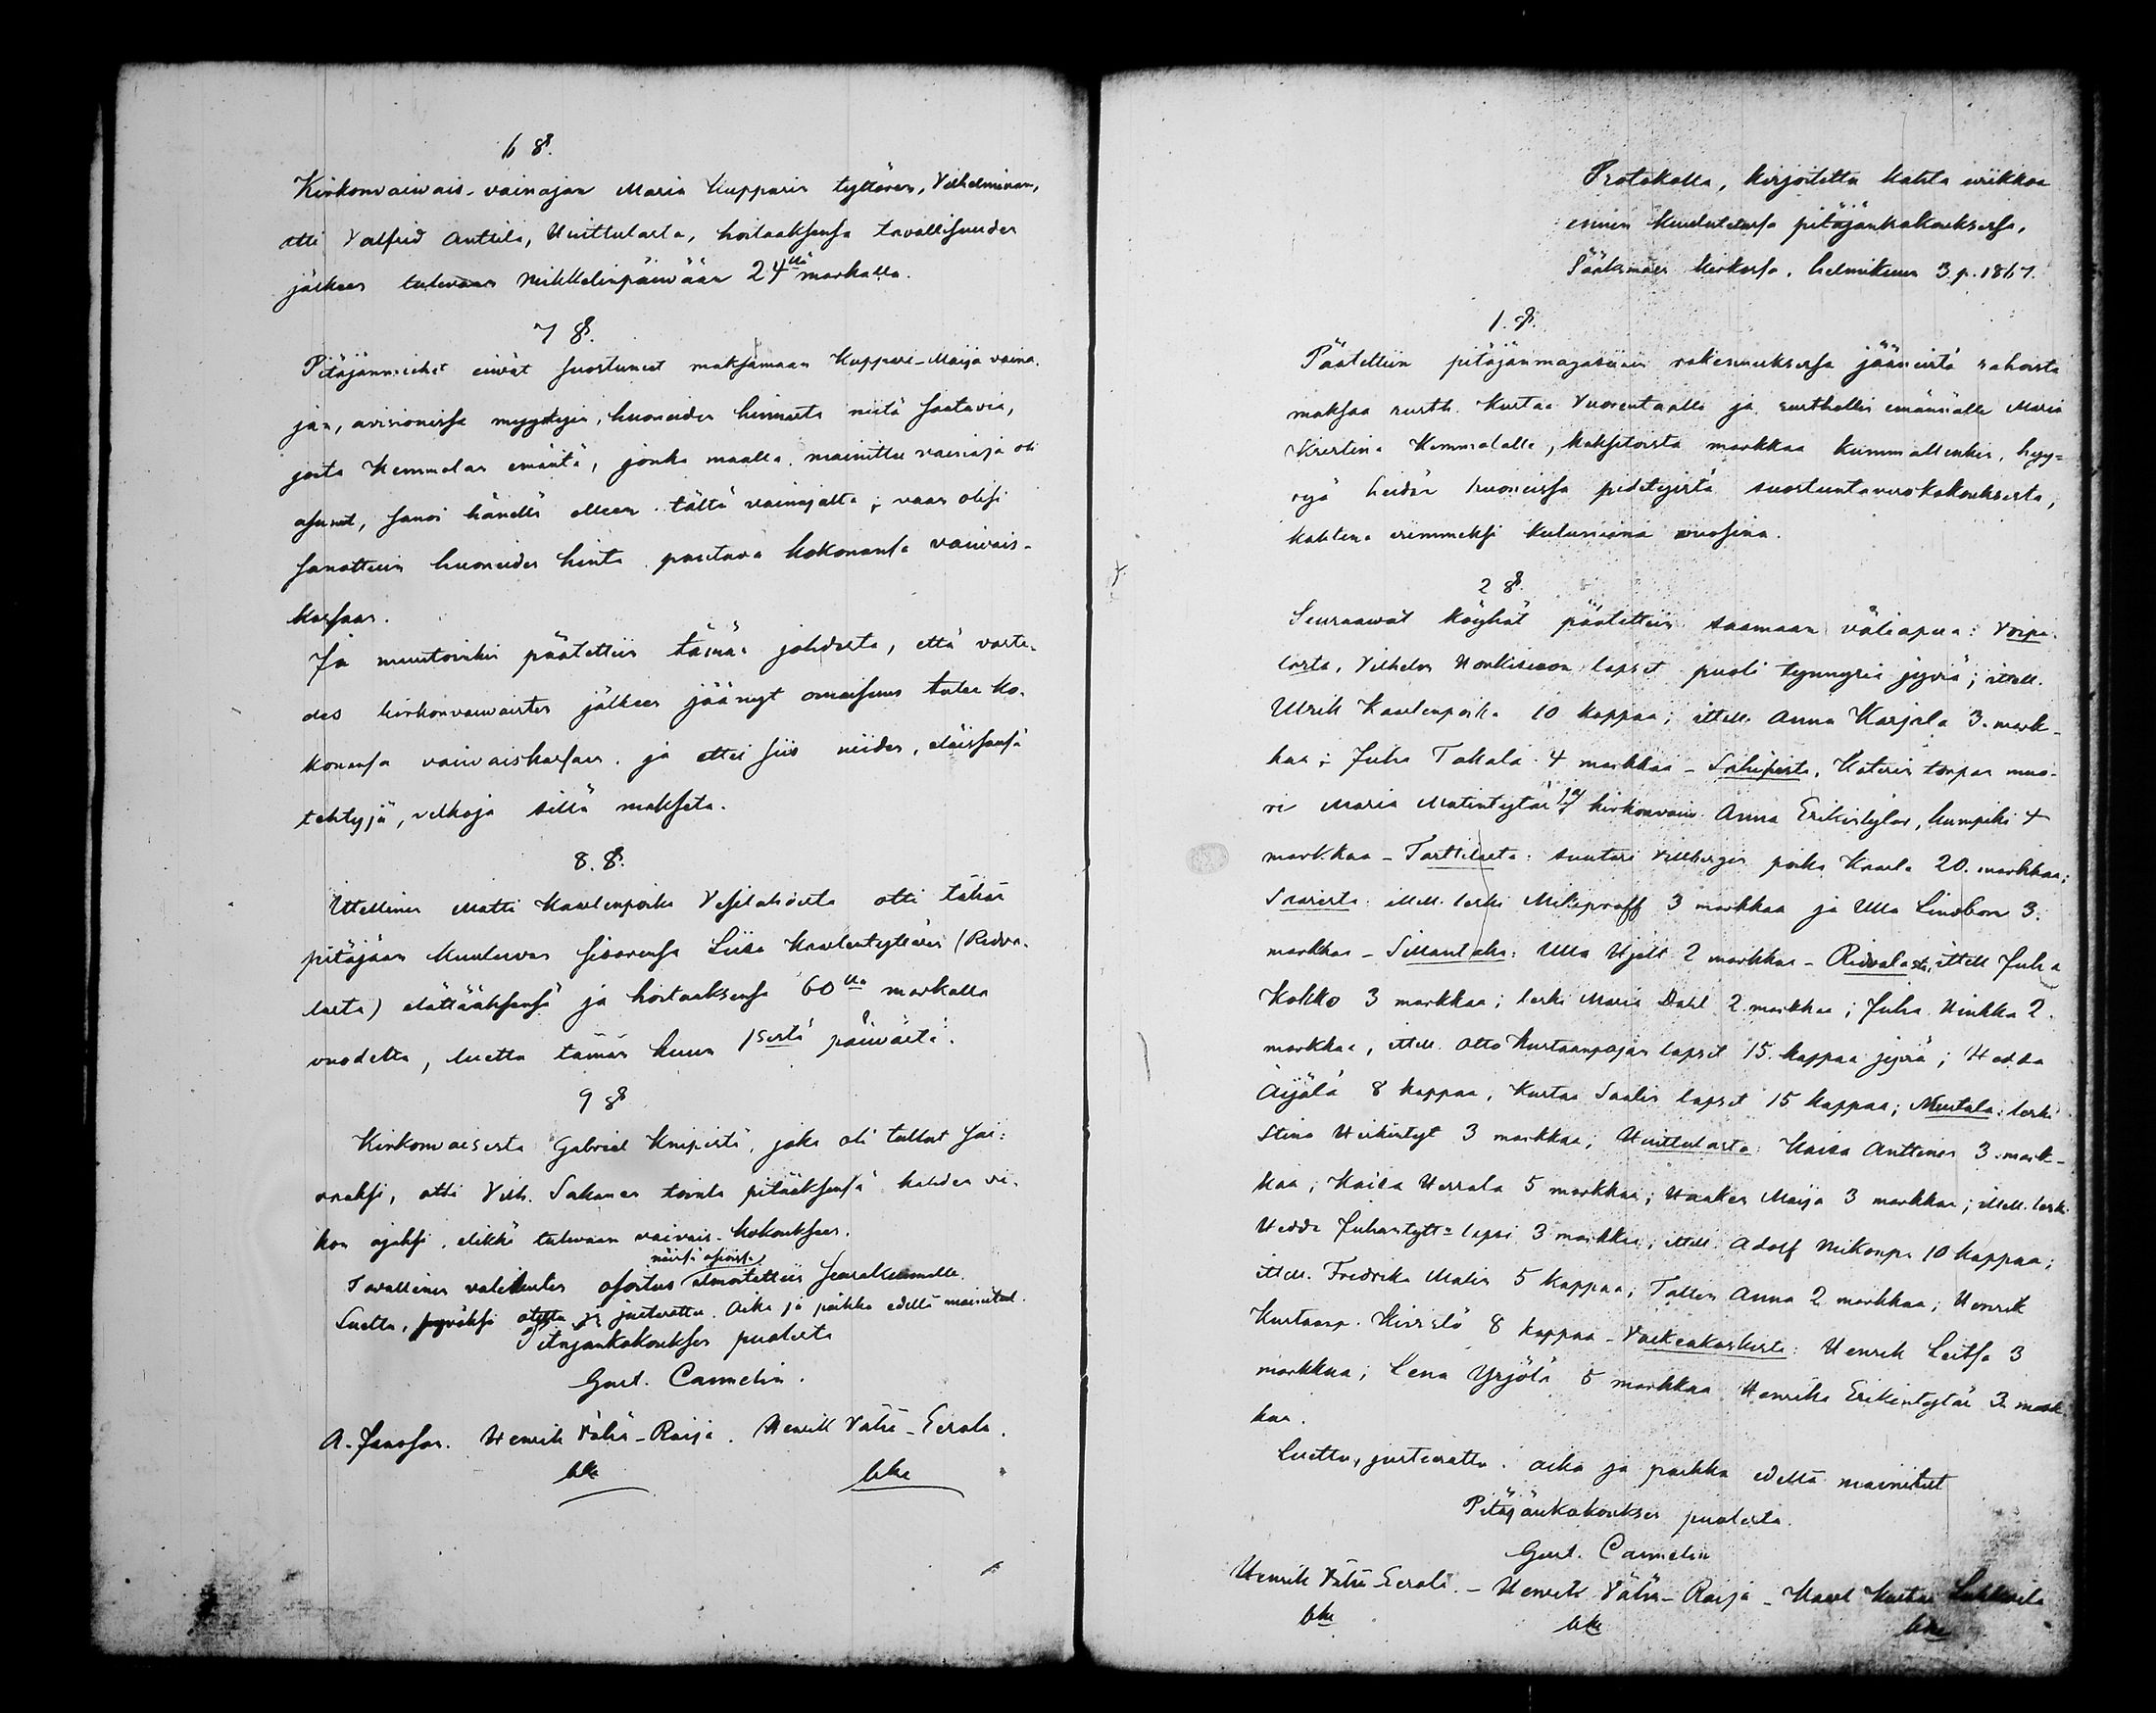 6 §.
Kirkonvaivais-vainajan Maria Kupparin tyttären, Vilhelminan,
otti Valfrid Anttila, Uittulasta, hoitaaksensa tavallisuuden
jälkeen tulevaan Mikkelinpäivään 24llä markalla.
7 §.
Pitäjänmiehet eivät suostuneet maksamaan Kuppari-Maija vaina-
jan, avisionissa myytyjen, huoneiden hinnasta niitä saatavia,
joita Kemmolan emäntä, jonka maalla mainittu vainaja oli
asunut, sanoi hänellä olleen tältä vainajalta; vaan olisi
sanottuin huoneiden hinta pantava kokonansa vaivais-
kassaan.
Ja muutoinkin päätettiin tämän johdosta, että vasta-
des kirkonvaivaisten jälkeen jäänyt omaisuus tulee ko-
konansa vaivaiskassaan ja ettei siis niiden, eläissänsä
tehtyjä, velkoja sillä makseta.
8. §.
Itellinen Matti Kaarlenpoika Vesilahdesta otti tähän
pitäjään kuuluvan sisarensa Liisa Kaarlentyttären (Ridva-
lasta) elättääksensä ja hoitaaksensa 60lla markalla
vuodelta, luettu tämän kuun 1sestä päivästä.
9 §
Kirkonvaisesta Gabriel Knipistä, joka oli tullut sai-
raaksi, otti Vilh. Sakanen tointa pitääksensä kahden vi-
kon ajaksi, elikkä tulevaan vaivais-kokoukseen.
näissä asioissa
Tavallinen valitusten osoitus ilmoitettiin seurakunnalle.
Luettu, hyväksi otettu ja justeerattu. Aika ja paikka edellä mainitut.
Pitäjänkokouksen puolesta
Gust. Cannelin.
A. Janssan. Henrik Vähä-Raija. Henrik Vähä-Eerola.
lke lke
Protokolla, kirjoitettu kahta viikkoa
ennen kuulutetussa pitäjänkokouksessa,
Sääksmäen kirkossa, helmikuun 3 p. 1867.
1. §.
Päätettiin pitäjänmagasiinin rakennuksessa jääneistä rahoista
maksaa rusth. Kustaa Vuorentaalle ja rusthollin emännälle Maria
Kristina Kemmolalle, kaksitoista markkaa kummallenkin, hyy-
ryä heidän huoneissa pidetyistä suostuntaverokokouksista,
kahtena viimmeksi kuluneina vuosina.
2 §.
Seuraavat köyhät päätettiin saamaan väliapua: Voipa-
lasta, Vilhelm Honkisuon lapset puoli tynnyriä jyviä; itell.
Ulrik Kaarlenpoika 10 kappaa; itell. Anna Karjala 3 mark-
kaa; Juha Takala 4 markkaa - Kateris torpan muo-
ri Maria Matintytär ja kirkonvaiv. Anna Erikintytär, kumpiki 4
markkaa - Tarttilasta: suutari Villbergin poika Kaarle 20 markkaa;
Saarista: itell. leski 3 markkaa ja Ulla Lindbom 3
markkaa - Sillantaka: Ulla Hjelt 2 markkaa - Ridvalasta, itell Juha
Kokko 3 markkaa; leski Maria Dahl 2 markkaa; Juha Hinkka 2
markkaa, itell. Otto Kustaanpojan lapset 15 kappaa jyviä; Hedda
Äijälä 8 kappaa, Kustaa Saalin lapset 15 kappaa; leski
Stina Heikintyt 3 markkaa; Uittulasta: Kaisa Anttinen 3 mark-
kaa; Kaisa Herrala 5 markkaa; Haaken Maija 3 markkaa; itell. leski
Hedda Juhantytt= lapsi 3 markkaa; itell. Adolf Mikonp. 10 kappaa;
itell. Fredrika Malin 5 kappaa; Tallin Anna 2 markkaa; Henrik
Kustaanp. Kivistö 8 kappaa - Valkeakoskesta: Henrik Leitsa 3
markkaa; Lena Yrjölä 5 markkaa Henrika Erikintytär 3 mark-
kaa.
Luettu, justeerattu. aika ja paikka edellä mainitut
Pitäjänkokouksen puolesta.
Gust. Cannelin
Henrik Vähä-Eerola. - Henrik Vähä-Raija - Kaarl Kustaa
lke lke lke